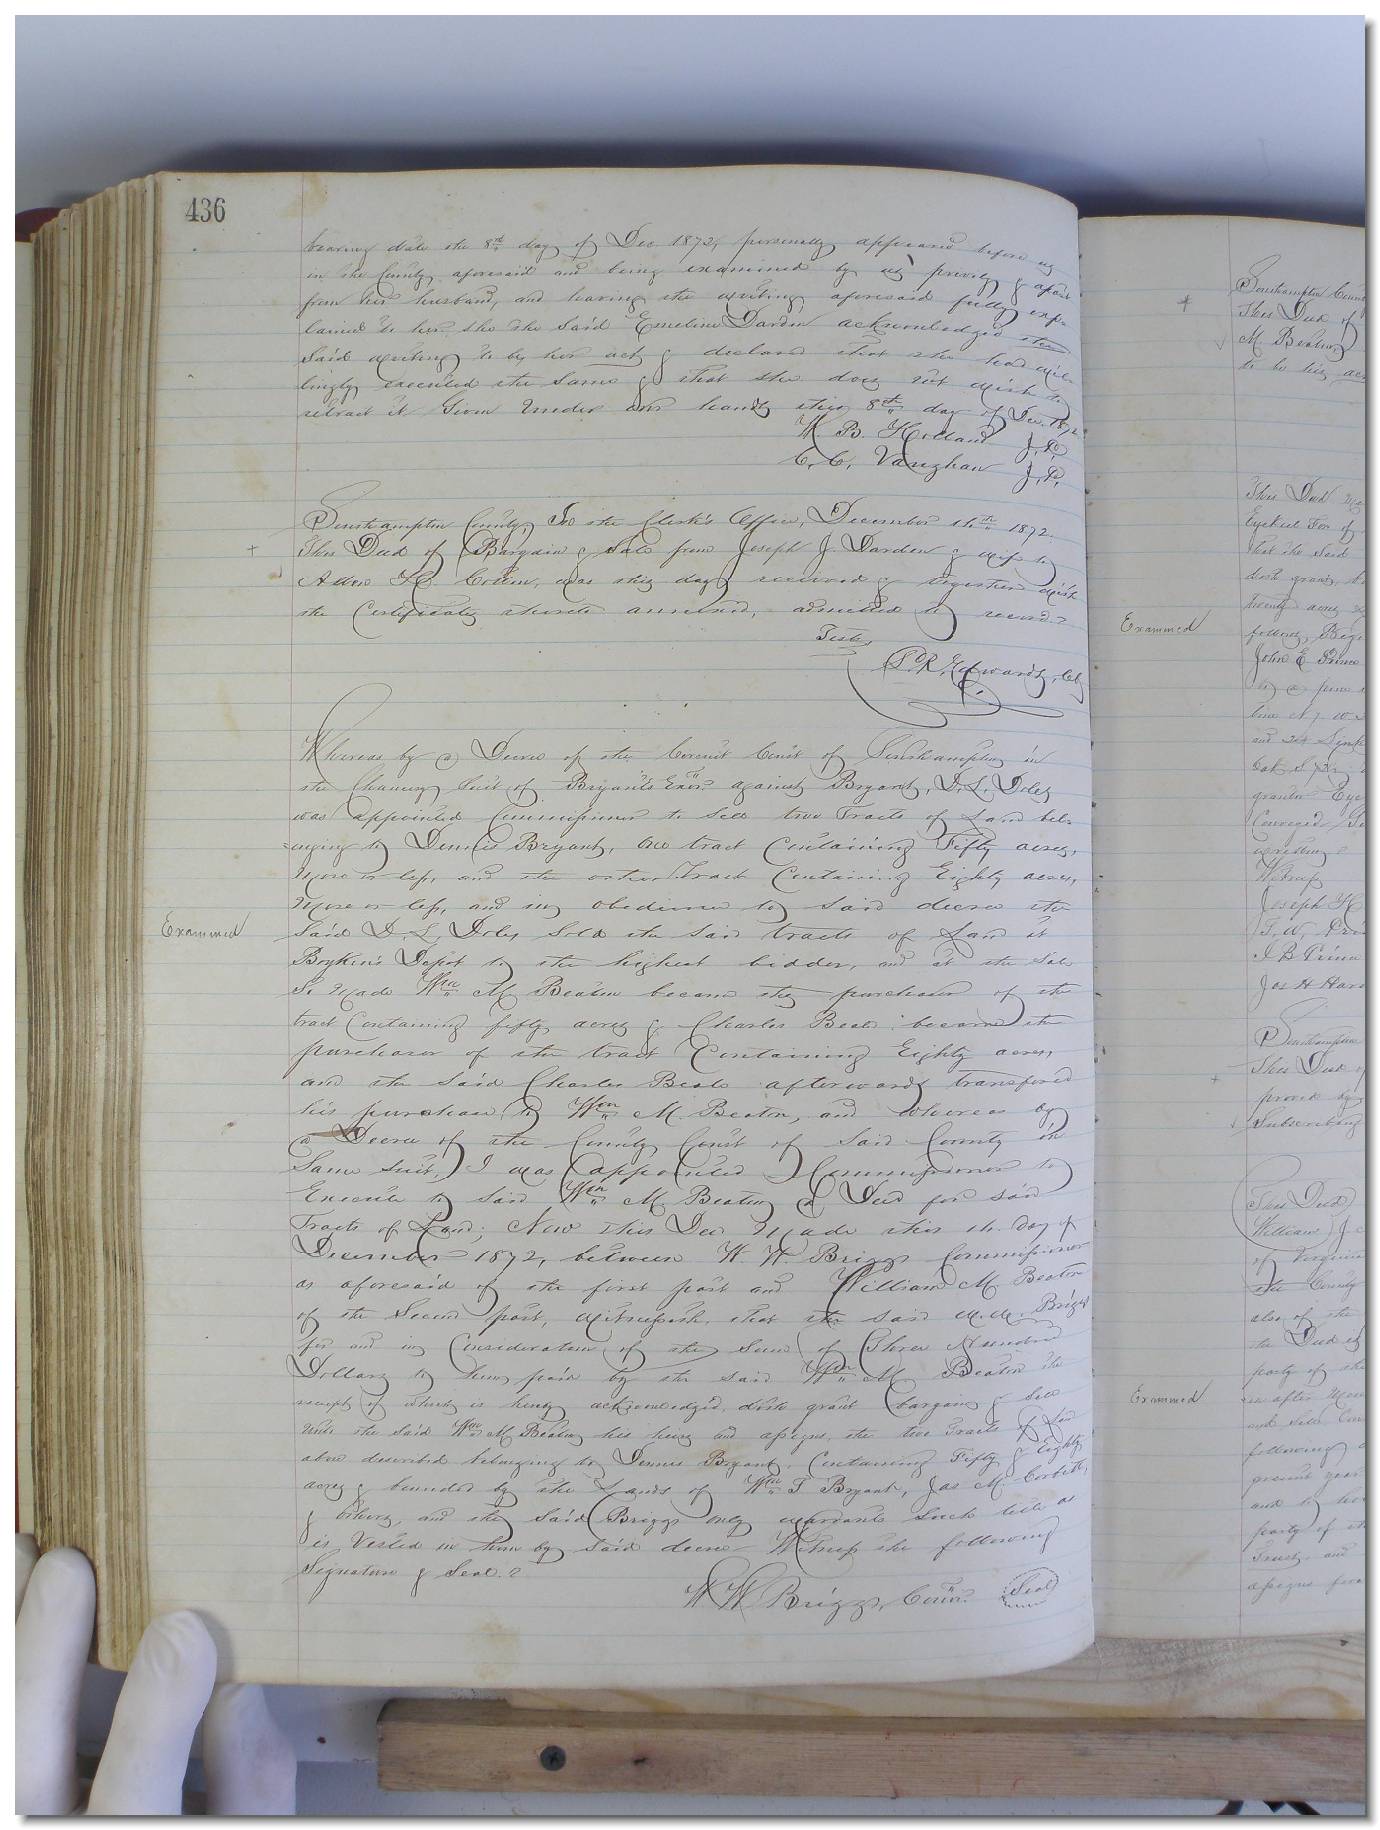 436
bearing date the 8th day of Dec. 1872, personally appeared before us
in the County aforesaid and being examined by us privily & apart
from her husband, and having the writing aforesaid fully exp-
lained to her she the said Emeline Darden acknowledged the
said writing to be her act & declared that she had wil-
lingly executed the same & that she does not wish to
retract it Given under our hands this 8th day of Dec. 1872
W. B. Holland J.P.
C. C. Vaughan J.P.
Southampton County, In the Clerk's Office, December 11th 1872.
This Deed of Bargain & Sale from Joseph J. Darden & wife to
was this day received & together with
the Certificate thereto annexed, admitted to record.
Teste,
L. R. Edwards, Clk
Whereas by a Decree of the Circuit Court of Southampton in
the Chancery Suit of Bryant's Exor. against Bryant, D. L. Doles
was appointed Commissioner to sell two Tracts of Land bel-
onging to Dennis Bryant, One tract Containing Fifty acres,
more or less, and the other Tract Containing Eighty acres,
more or less, and in obedience to said decree the
Examined
said D. L. Doles sold the said tracts of Land at
Boykin's Depot to the highest bidder, and at the Sale
so made Wm M. Beaton became the purchaser of the
tract Containing fifty acres & Charles Beale became the
purchaser of the tract Containing Eighty acres,
and the said Charles Beale afterwards transfered
his purchase to Wm M. Beaton, and whereas by
a Decree of the County Court of said County in
Same Suit, I was appointed Commissioner to
Execute to said Wm M. Beaton a Deed for said
Tracts of Land; Now this Deed made this 16 day of
December 1872, between W. W. Briggs Commissioner
as aforesaid of the first part and William M Beaton
of the Second part, witnesseth, that the said W. W. Briggs
for and in Consideration of the Sum of Three Hundred
Dollars to him paid by the said Wm M. Beaton the
receipt of which is hereby acknowledged, doth grant bargain & sell
unto the said Wm M Beaton his heirs and assigns, the two Tracts of Land
above described belonging to Dennis Bryant, Containing Fifty & Eighty
acres & bounded by the Lands of Wm T Bryant, Jas M. Corbitt,
& others, and the said Briggs only warrants such title as
is Vested in him by said decree Witness the following
Signature & Seal.
W W Briggs, Comr. Seal
Southampton
This Deed of
M. Beaton
to be his
This Deed
Ezekiel
that the said
twenty acres
Examined
John E Prince
Conveyed
Joseph H
Jas H
Southampton
This Deed
proved by
Subscribing
This Deed
William J
of Virginia
the County
also of the
party of the
Examined
following
party of the
Trust, and